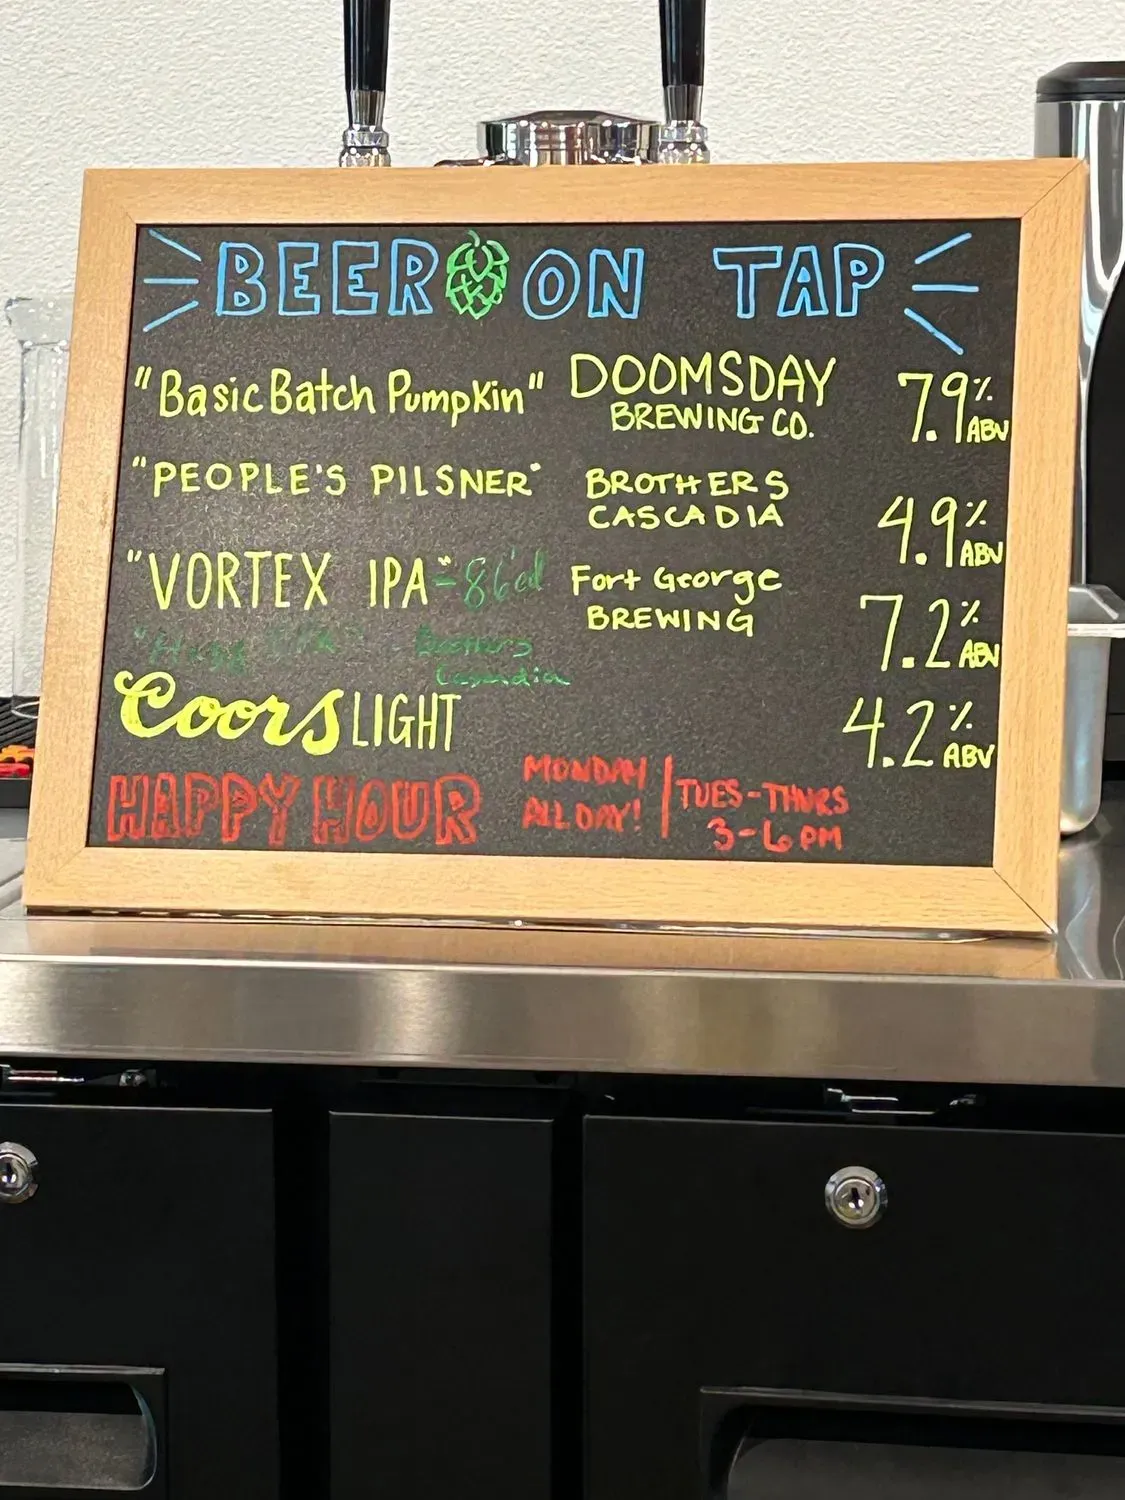 BEER ON TAP
"Basic Batch Pumpkin" DOOMSDAY BREWING CO. 7.9% ABV
"PEOPLE'S PILSNER" BROTHERS CASCADIA 4.9% ABV
"VORTEX IPA"-86'd Fort George BREWING 7.2% ABV
IPA" - Brothers Cascadia
Coors LIGHT 4.2% ABV
HAPPY HOUR MONDAY ALL DAY! | TUES-THURS 3-6PM